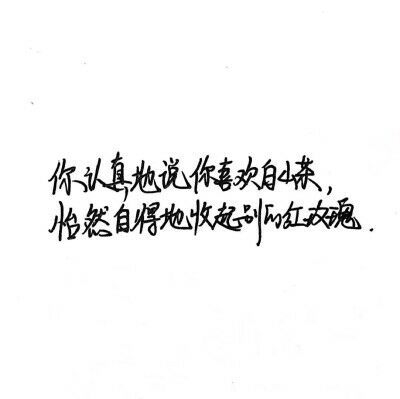 你认真地说你喜欢白山茶,
怡然自得地收起别的红玫瑰.